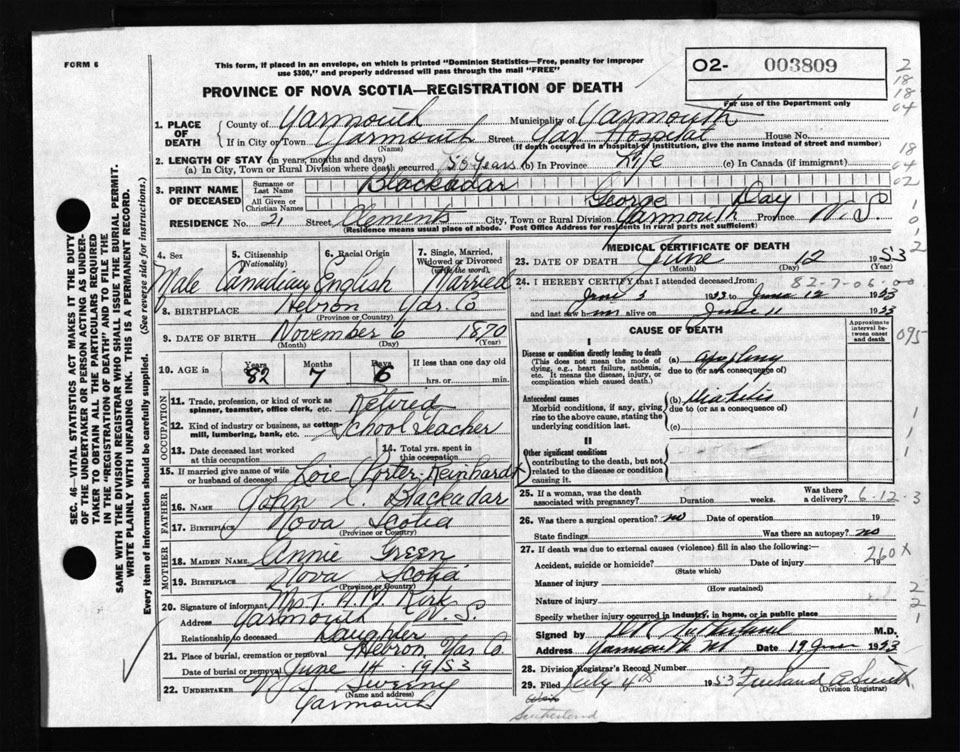 FORM 6
This form, if placed in an envelope, on which is printed "Dominion Statistics—Free, penalty for improper
use $300," and properly addressed will pass through the mail "FREE"
O2- 003809
PROVINCE OF NOVA SCOTIA—REGISTRATION OF DEATH
For use of the Department only
2
18
18
04
18
04
02
1
0
1
2
1. PLACE OF DEATH
County of Yarmouth Municipality of Yarmouth
If in City or Town Yarmouth Street Yar Hospital House No.
(Name) (If death occurred in a hospital or institution, give the name instead of street and number)
2. LENGTH OF STAY (in years, months and days)
(a) In City, Town or Rural Division where death occurred 50 years (b) in Province Life (c) In Canada (if immigrant)
3. PRINT NAME OF DECEASED
Surname or Last Name Blackadar
All Given or Christian Names George Day
RESIDENCE No. 21 Street Clements City, Town or Rural Division Yarmouth Province N.S.
(Residence means usual place of abode. Post Office Address for residents in rural parts not sufficient)
4. Sex 5. Citizenship (Nationality) 6. Racial Origin 7. Single, Married, Widowed or Divorced (write the word)
Male Canadian English Married
8. BIRTHPLACE Hebron Yar. Co.
(Province or Country)
9. DATE OF BIRTH November 6 1870
(Month) (Day) (Year)
10. AGE in Years Months Days If less than one day old
82 7 6 hrs. or min.
OCCUPATION
11. Trade, profession, or kind of work as
spinner, teamster, office clerk, etc. Retired
12. Kind of industry or business, as cotton-
mill, lumbering, bank, etc. School Teacher
13. Date deceased last worked at this occupation
14. Total yrs. spent in this occupation
15. If married give name of wife or husband of deceased Loie Porter Reinhardt
FATHER
16. NAME John Blackadar
17. BIRTHPLACE Nova Scotia
(Province or Country)
MOTHER
18. MAIDEN NAME Annie Green
19. BIRTHPLACE Nova Scotia
(Province or Country)
20. Signature of informant Mrs. T. A. M. Kirk
Address Yarmouth N.S.
Relationship to deceased Daughter
21. Place of burial, cremation or removal Hebron Yar Co.
Date of burial or removal June 14 1953
22. UNDERTAKER Sweeny
(Name and address)
Yarmouth
MEDICAL CERTIFICATE OF DEATH
23. DATE OF DEATH June 12 1953
(Month) (Day) (Year)
24. I HEREBY CERTIFY that I attended deceased from:
82-7-06-00
June 3 1953 to June 12 1953
and last saw him alive on June 11 1953
CAUSE OF DEATH
Approximate interval between onset and death
095
I
Disease or condition directly leading to death
(This does not mean the mode of
dying, e.g., heart failure, asthenia,
etc. It means the disease, injury, or
complication which caused death.)
(a)
due to (or as a consequence of)
Antecedent causes
Morbid conditions, if any, giving
rise to the above cause, stating the
underlying condition last.
(b) Diabetis
due to (or as a consequence of)
(c)
II
Other significant conditions
contributing to the death, but not
related to the disease or condition
causing it.
1
1
1
25. If a woman, was the death associated with pregnancy? Duration weeks. Was there a delivery?
6-12-3
26. Was there a surgical operation? no Date of operation 19
State findings Was there an autopsy? no
27. If death was due to external causes (violence) fill in also the following:—
260X
Accident, suicide or homicide? Date of injury 19
(State which)
Manner of injury
(How sustained)
Nature of injury
2
2
1
Specify whether injury occurred in industry, in home, or in public place
Signed by M.D.
Address Yarmouth NS Date 19 June 1953
28. Division Registrar's Record Number
29. Filed July 4th 1953
(Division Registrar)
Sutherland
SEC. 46 VITAL STATISTICS ACT MAKES IT THE DUTY
OF THE UNDERTAKER OR PERSON ACTING AS UNDER-
TAKER TO OBTAIN ALL THE PARTICULARS REQUIRED
IN THE "REGISTRATION OF DEATH" AND TO FILE THE
SAME WITH THE DIVISION REGISTRAR WHO SHALL ISSUE THE BURIAL PERMIT.
WRITE PLAINLY WITH UNFADING INK. THIS IS A PERMANENT RECORD.
Every item of information should be carefully supplied. (See reverse side for instructions.)